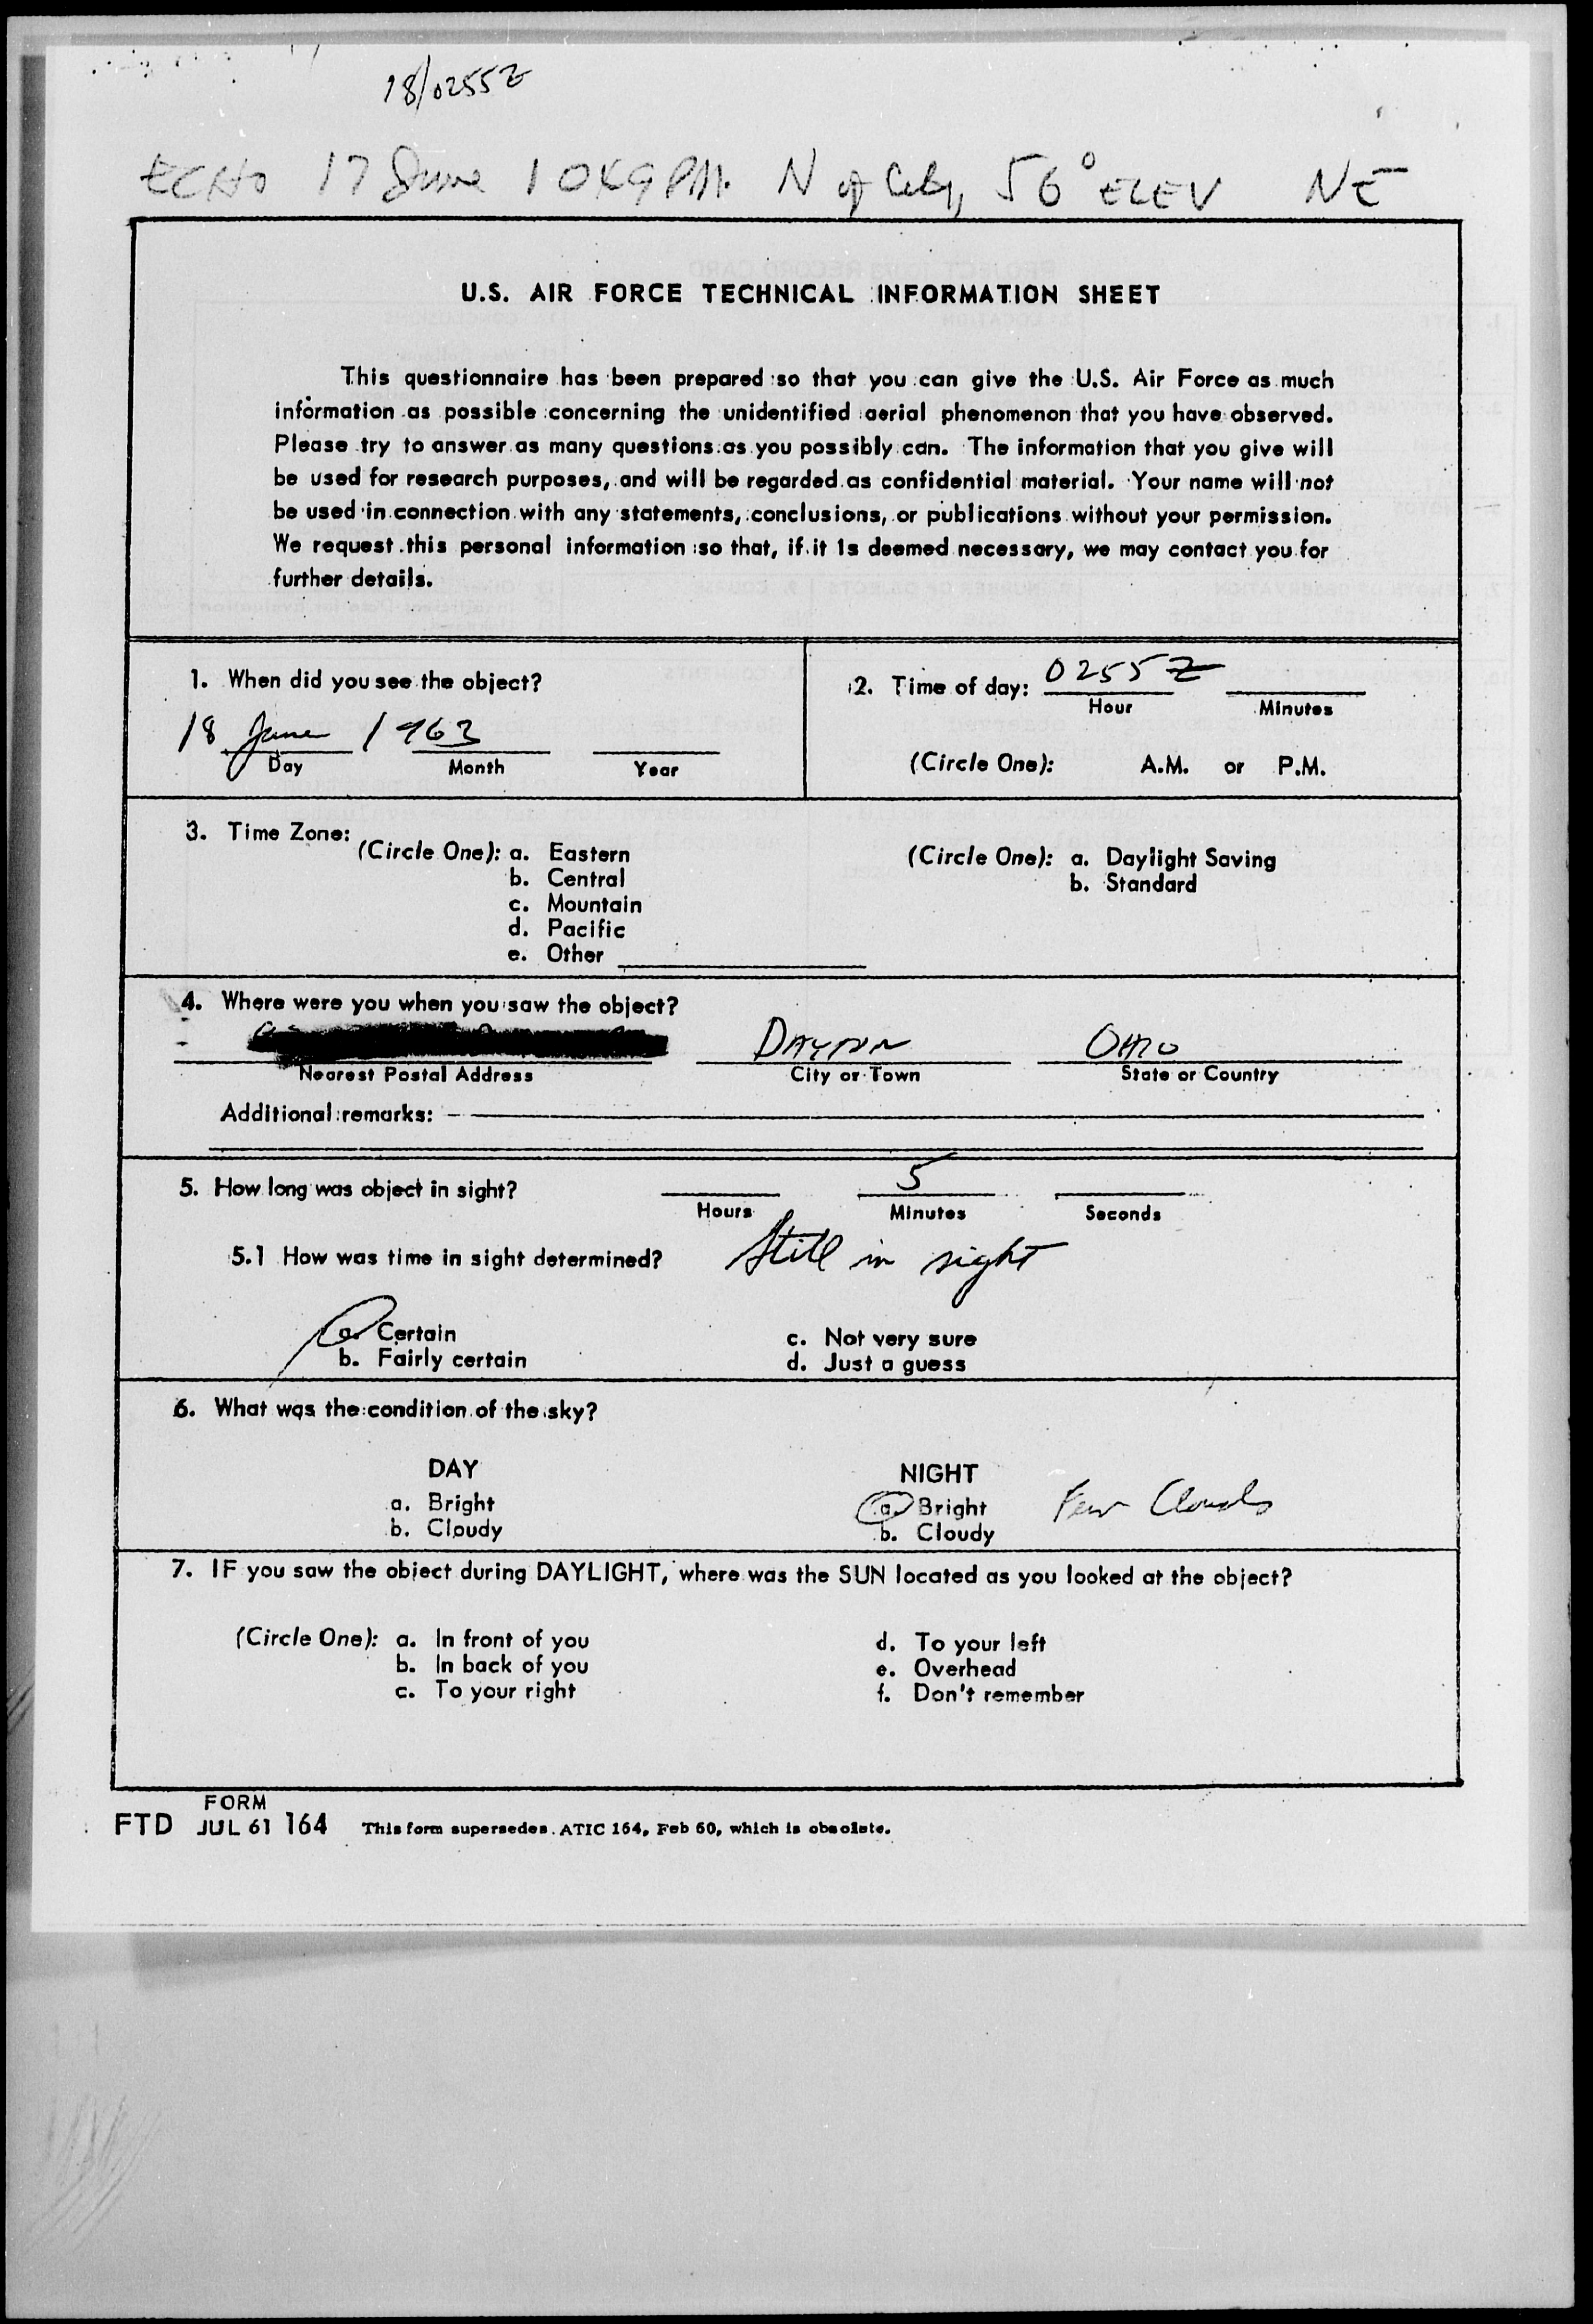 18/0255Z
ECHO 17 June 1049 PM. N of City, 56° ELEV NE
U.S. AIR FORCE TECHNICAL INFORMATION SHEET
This questionnaire has been prepared so that you can give the U.S. Air Force as much
information as possible concerning the unidentified aerial phenomenon that you have observed.
Please try to answer as many questions as you possibly can. The information that you give will
be used for research purposes, and will be regarded as confidential material. Your name will not
be used in connection with any statements, conclusions, or publications without your permission.
We request this personal information so that, if it is deemed necessary, we may contact you for
further details.
1. When did you see the object?
18 June 1963
Day Month Year
2. Time of day: 0255 Z
Hour Minutes
(Circle One): A.M. or P.M.
3. Time Zone:
(Circle One): a. Eastern
b. Central
c. Mountain
d. Pacific
e. Other
(Circle One): a. Daylight Saving
b. Standard
4. Where were you when you saw the object?
DAYTON OHIO
Nearest Postal Address City or Town State or Country
Additional remarks:
5. How long was object in sight? 5
Hours Minutes Seconds
5.1 How was time in sight determined? Still in sight
a. Certain c. Not very sure
b. Fairly certain d. Just a guess
6. What was the condition of the sky?
DAY NIGHT
a. Bright a. Bright Few Clouds
b. Cloudy b. Cloudy
7. IF you saw the object during DAYLIGHT, where was the SUN located as you looked at the object?
(Circle One): a. In front of you d. To your left
b. In back of you e. Overhead
c. To your right f. Don't remember
FORM
FTD JUL 61 164 This form supersedes ATIC 164, Feb 60, which is obsolete.